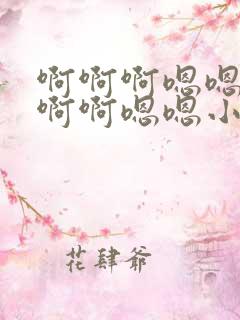 啊啊啊嗯嗯
啊啊嗯嗯小
花肆爷